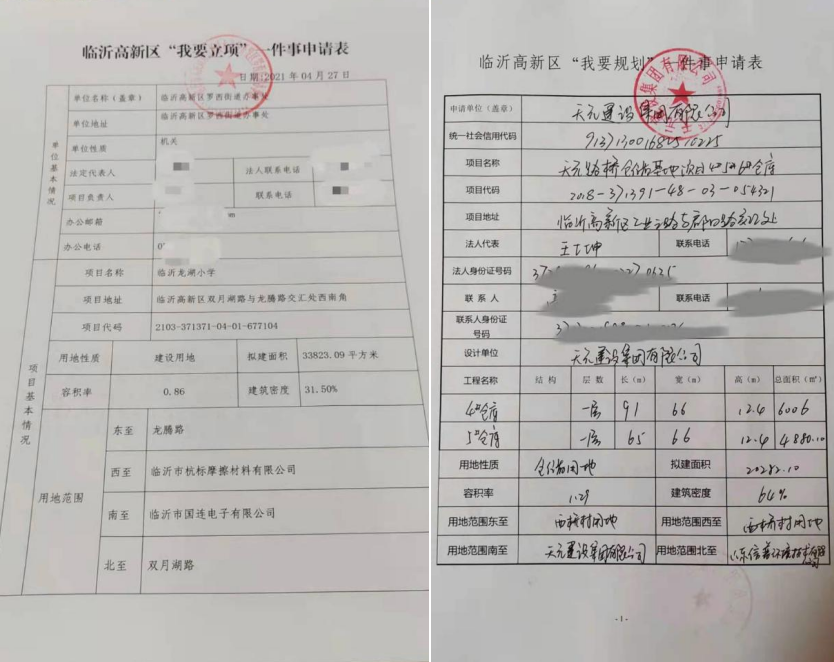 临沂高新区“我要立项”一件事申请表
日期 2021 年 04 月 27 日
单位基本情况
单位名称（盖章） 临沂高新区罗西街道办事处
单位地址 临沂高新区罗西街道办事处
单位性质 机关
法定代表人 法人联系电话
项目负责人 联系电话
办公邮箱 m
办公电话 0
项目基本情况
项目名称 临沂龙湖小学
项目地址 临沂高新区双月湖路与龙腾路交汇处西南角
项目代码 2103-371371-04-01-677104
用地性质 建设用地 拟建面积 33823.09 平方米
容积率 0.86 建筑密度 31.50%
用地范围
东至 龙腾路
西至 临沂市杭标摩擦材料有限公司
南至 临沂市国连电子有限公司
北至 双月湖路
临沂高新区“我要规划”一件事申请表
申请单位（盖章） 天元建设集团有限公司
统一社会信用代码
项目名称 天元路桥仓储基地项目4#5#6#仓库
项目代码 2018-371391-48-03-054321
项目地址 临沂高新区工业
法人代表 联系电话
法人身份证号码
联系人 联系电话
联系人身份证号码
设计单位 天元建设集团有限公司
工程名称 结构 层数 长（m） 宽（m） 高（m） 总面积（㎡）
4#仓库 一层 91 66 12.4 6006
5#仓库 一层 65 66 12.4 4880.10
用地性质 仓储用地 拟建面积 20282.10
容积率 1.29 建筑密度 64%
用地范围东至 西桥村用地 用地范围西至 西桥村用地
用地范围南至 天元建设集团有限公司 用地范围北至
-1-